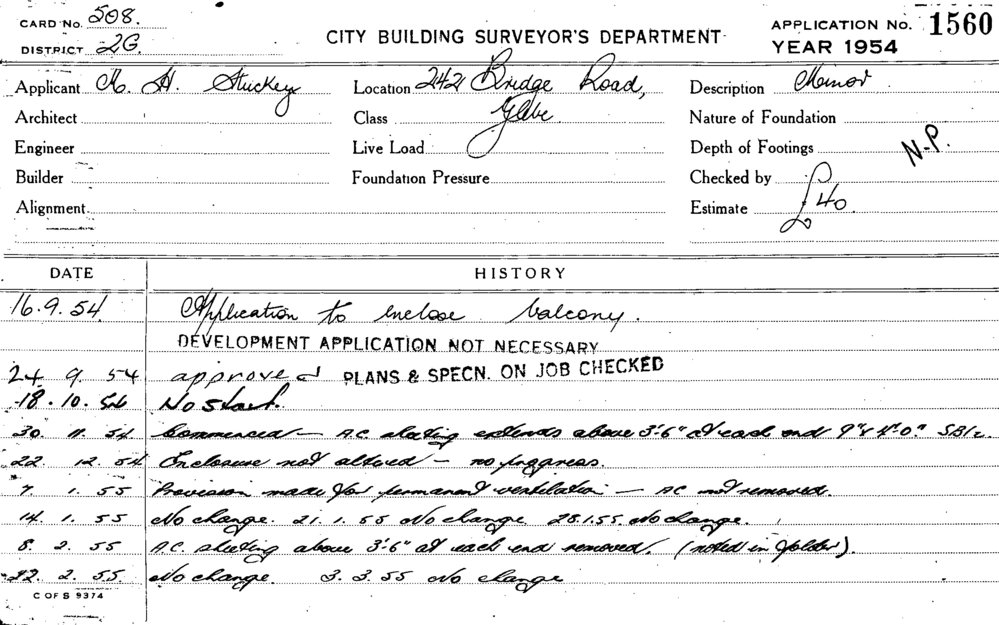 CARD No. 508.
DISTRICT 2G.
CITY BUILDING SURVEYOR'S DEPARTMENT
APPLICATION No. 1560
YEAR 1954
Applicant H. Stuckey
Location 242 Bridge Road,
Description Minor
Architect
Class Glebe
Nature of Foundation
Engineer
Live Load
Depth of Footings
N-P.
Builder
Foundation Pressure
Checked by
Alignment
Estimate £40.
DATE HISTORY
16.9.54 Application to enclose balcony.
DEVELOPMENT APPLICATION NOT NECESSARY
24 9. 54 approved PLANS & SPECN. ON JOB CHECKED
18.10.54 No start.
30. 11. 54 Commenced — A.C. sheeting extends above 3'-6" at each end 9" & 4'-0"
22. 12. 54 Enclosure not altered — no progress.
7. 1. 55 Provision made for permanent ventilation — AC not removed.
14. 1. 55 No change. 21. 1. 55 No change 28.1.55. No change.
8. 2. 55 A.C. sheeting above 3'-6" at each end removed. (noted in folder).
22. 2. 55. No change 3. 3. 55 No change
C OF S 9374